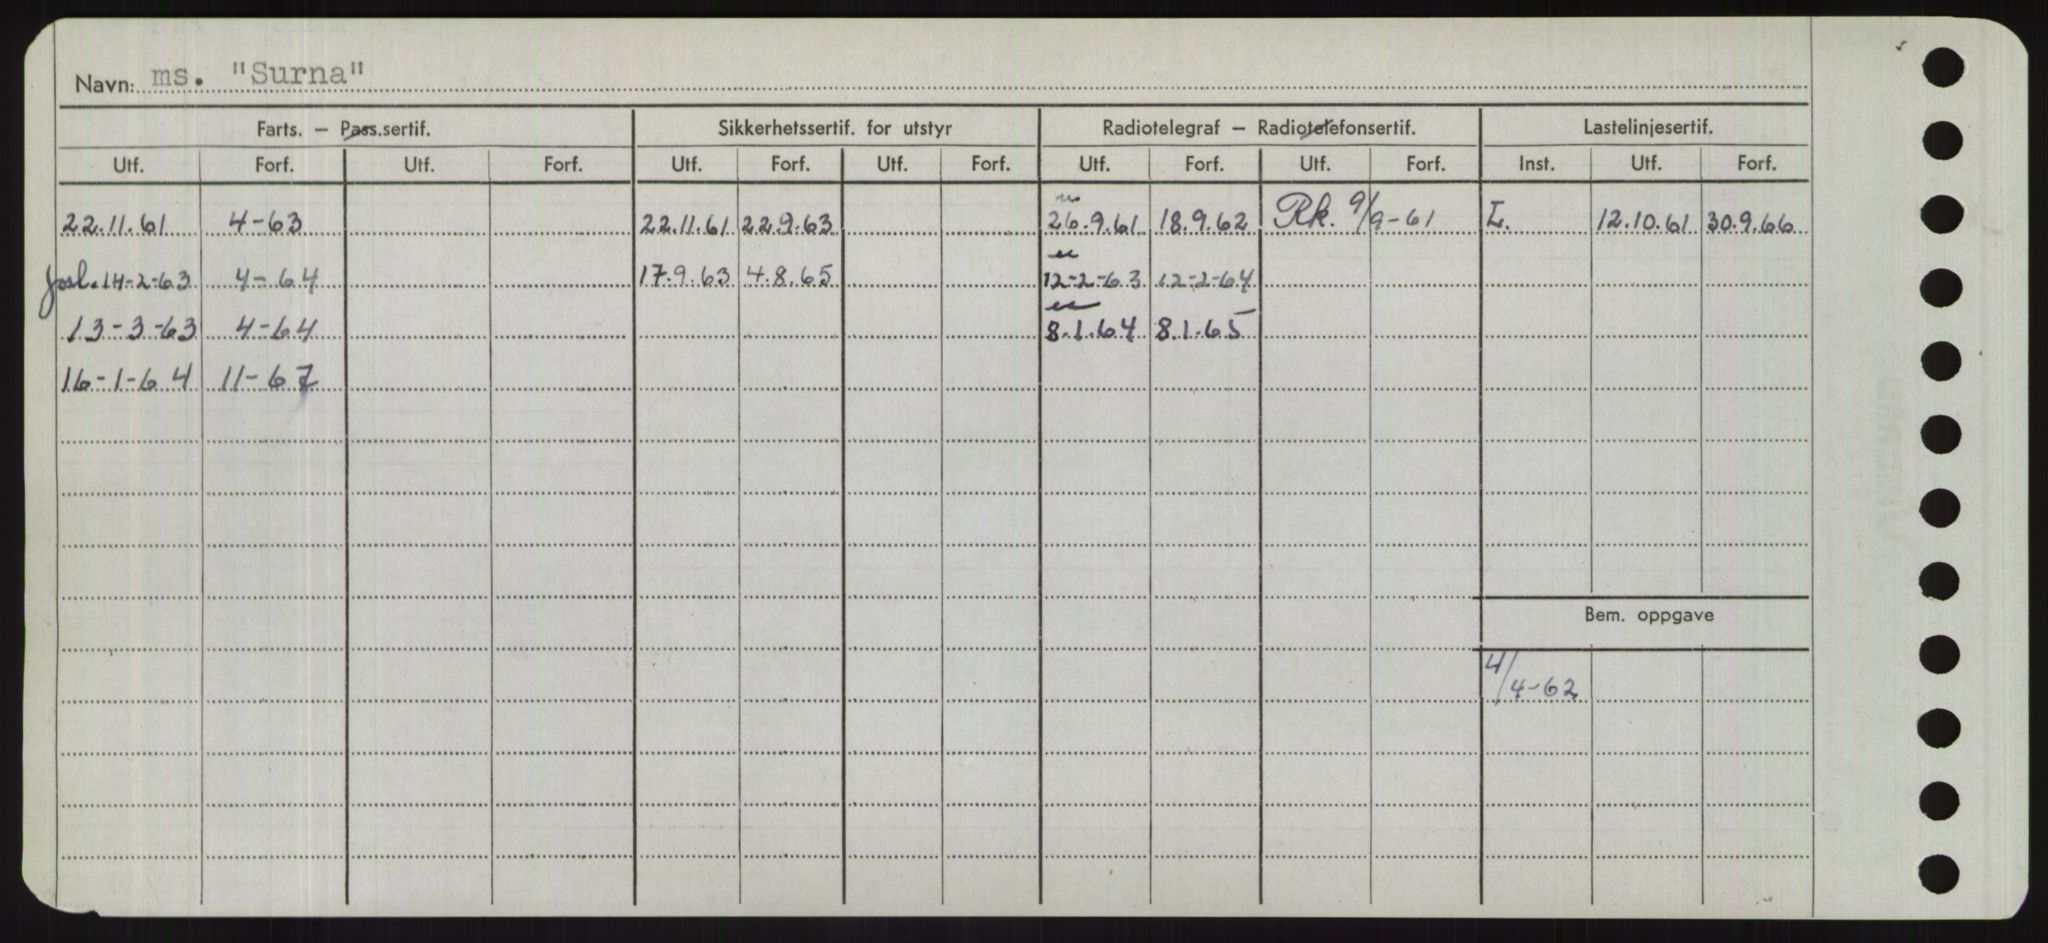 Navn: ms. "Surna"
Farts. – Pass.sertif. Sikkerhetssertif. for utstyr Radiotelegraf – Radiotelefonsertif. Lastelinjesertif.
Utf. Forf. Utf. Forf. Utf. Forf. Utf. Forf. Utf. Forf. Utf. Forf. Inst. Utf. Forf.
22.11.61 4-63 22.11.61 22.9.63 26.9.61 18.9.62 Rk. 9/9-61 L. 12.10.61 30.9.66
14-2-63 4-64 17.9.63 4.8.65 12-2-63 12-2-64
13-3-63 4-64 8.1.64 8.1.65
16-1-64 11-67
Bem. oppgave
4/4-62